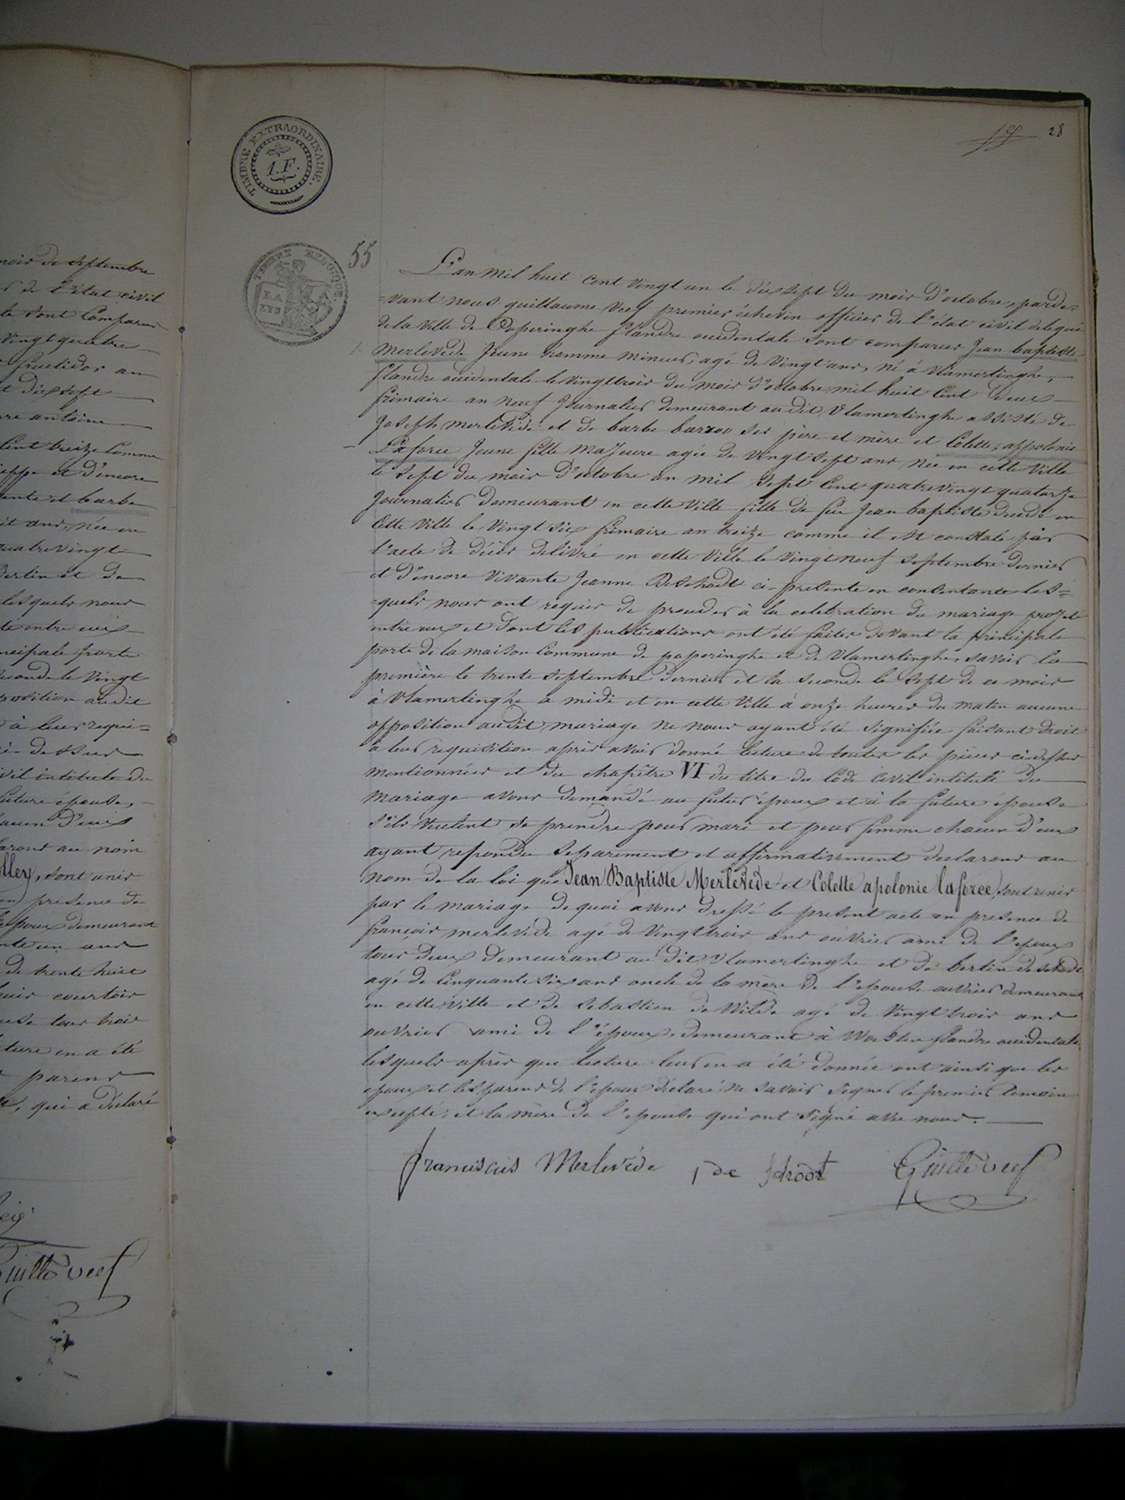 TIMBRE EXTRAORDINAIRE.
1. F.
28
55
L'an mil huit cent vingt un le dix sept du mois d'octobre, parde-
-vant nous guillaume veef premier échevin officier de l'état civil delegué
de la ville de Poperinghe flandre occidentale sont comparus Jean baptiste
Merlevede Jeune homme mineur, agé de vingt ans, né à Vlamertinghe,
flandre occidentale le vingttrois du mois d'octobre mil huit cent
frimaire an neuf Journalier demeurant au dit Vlamertinghe assisté de
Joseph merlevede et de barbe ses père et mère et Colette appolonie
Laforce Jeune fille majeure agée de vingt sept ans née en cette ville
le sept du mois d'octobre an mil sept cent quatrevingt quatorze
Journalier demeurant en cette ville fille de feu Jean baptiste décédé en
cette ville le vingt six frimaire an treize comme il est constaté par
l'acte de décès délivré en cette ville le vingt neuf septembre dernier
et d'encore vivante Jeanne Deschodt ci présente en consentante les-
-quels nous ont requis de procéder à la celebration du mariage projeté
entre eux et dont les publications ont été faites devant la principale
porte de la maison commune de poperinghe et de Vlamertinghe, savoir la
première le trente septembre dernier et la seconde le sept de ce mois
à Vlamertinghe à midi et en cette ville à onze heures du matin aucune
opposition audit mariage ne nous ayant été signifiée faisant droit
à leur requisition après avoir donné lecture de toutes les pièces ci dessus
mentionnées et du chapitre VI du titre du Code civil intitulé du
mariage avons demandé au futur époux et à la future épouse
s'ils veulent se prendre pour mari et pour femme chacun d'eux
ayant repondu separement et affirmativement declarons au
nom de la loi que Jean Baptiste Merlevede et Colette apolonie laforce, sont unis
par le mariage de quoi avons dressé le present acte en presence de
françois merlevede agé de vingttrois ans ouvrier ami de l'epoux
tous deux demeurant au dit Vlamertinghe et de bertin deschodt
agé de cinquante six ans oncle de la mère de l'epouse ouvrier demeurant
en cette ville et de Sebastien de Wilde agé de vingt trois ans
ouvrier ami de l'époux, demeurant à flandre occidentale
lesquels après que lecture leur en a été donnée ont ainsi que les
epoux et les parens de l'epoux déclaré ne savoir signer le premier temoin
excepté et la mère de l'epouse qui ont signé avec nous.
franciscus Merlevede J de Schodt Guille veef
mois de septembre
de l'état civil
sont comparus
vingt quatre
fructidor an
dixsept
antoine
cent treize comme
et d'encore
et barbe
ans, née en
quatrevingt
bertin et de
lesquels nous
entre eux
principale porte
le vingt
opposition audit
à leur requi-
civil intitulé du
future épouse,
chacun d'eux
au nom
sont unis
presence de
demeurant
ans
de trente huit
courtois
tous trois
lecture en a été
parens
qui a déclaré
Guille veef